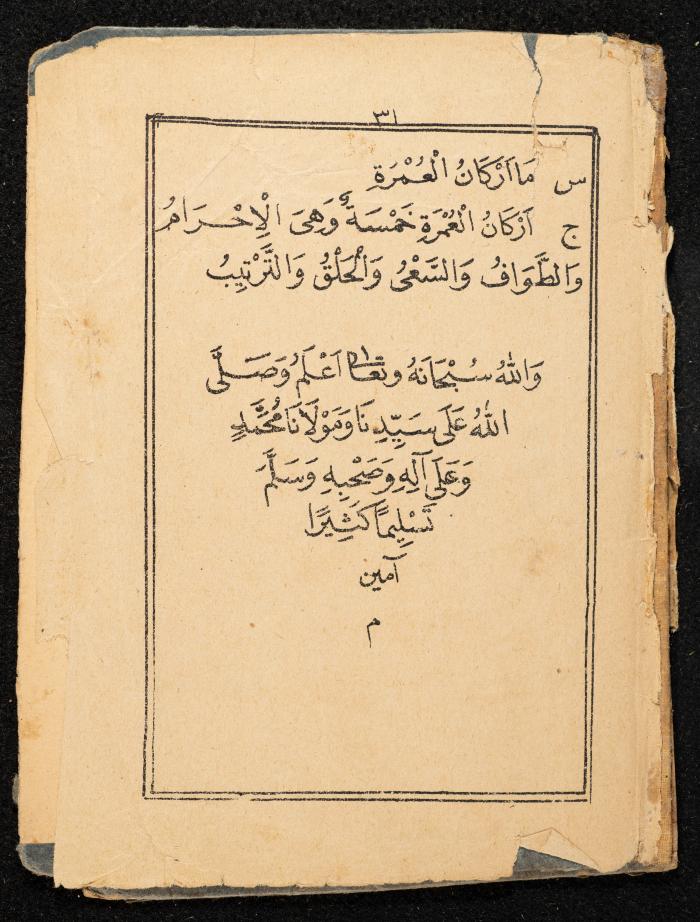 ٣١
س مَا اَرْكَانُ الْعُمْرَةِ
ج اَرْكَانُ الْعُمْرَةِ خَمْسَةٌ وَهِىَ الْاِحْرَامُ
وَالطَّوَافُ وَالسَّعْىُ وَالْحَلْقُ وَالتَّرْتِيبُ
وَاللهُ سُبْحَانَهُ وتَعَالَى اَعْلَمُ وَصَلَّى
اللهُ عَلَى سَيِّدِنَا وَمَوْلَانَا مُحَمَّدٍ
وَعَلَى آلِهِ وَصَحْبِهِ وَسَلَّمَ
تَسْلِيمًا كَثِيرًا
آمين
م